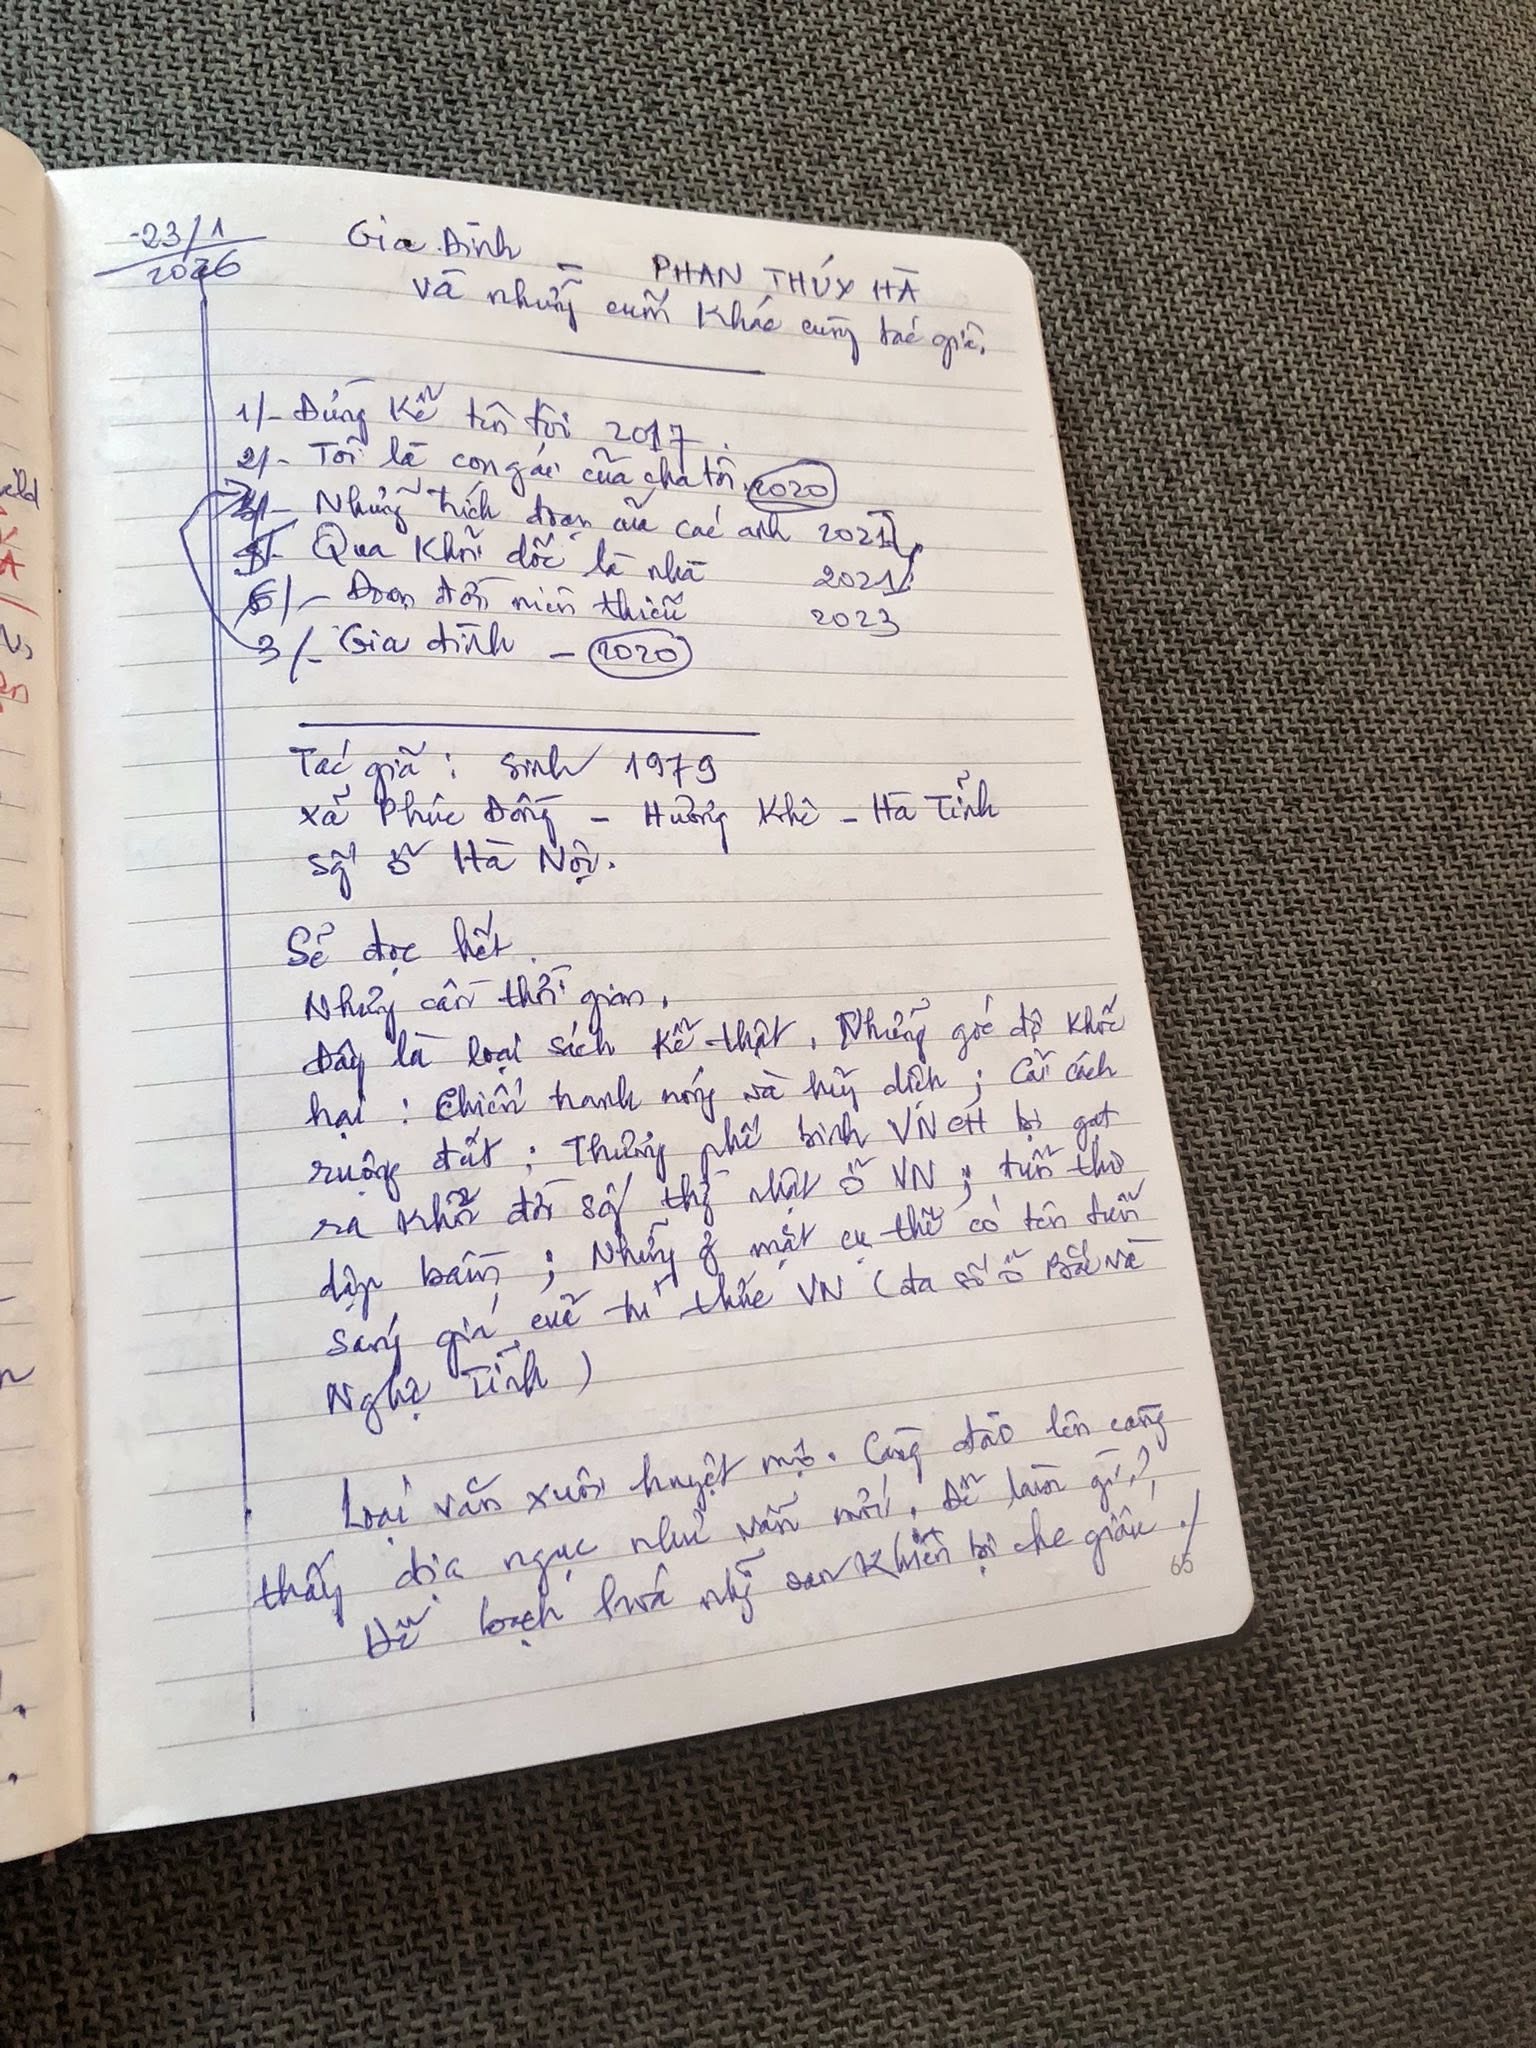 23/1
2026
Gia Đình - PHAN THÚY HÀ
và những cuốn khác cùng tác giả.
1/- Đừng kể tên tôi 2017.
2/- Tôi là con gái của cha tôi. 2020
4/- Những trích đoạn của các anh 2021
5/- Qua khỏi dốc là nhà 2021
6/- Đoạn đời niên thiếu 2023
3/- Gia đình - 2020
Tác giả: sinh 1979
xã Phúc Đồng - Hương Khê - Hà Tĩnh
Sống ở Hà Nội.
Sẽ đọc hết.
Nhưng cần thời gian.
Đây là loại sách kể thật. Những góc độ khốc
hại: Chiến tranh nóng và hủy diệt; Cải cách
ruộng đất; Thương phế binh VNCH bị gạt
ra khỏi đời sống thống nhất ở VN; tuổi thơ
dập bầm; Những mặt cụ thể có tên tuổi
sáng giá của trí thức VN (đa số ở Bắc và
Nghệ Tĩnh)
Loại văn xuôi huyệt mộ. Càng đào lên càng
thấy địa ngục như vẫn mới. Để làm gì?
Để bạch hoá những oan khiên bị che giấu./
65